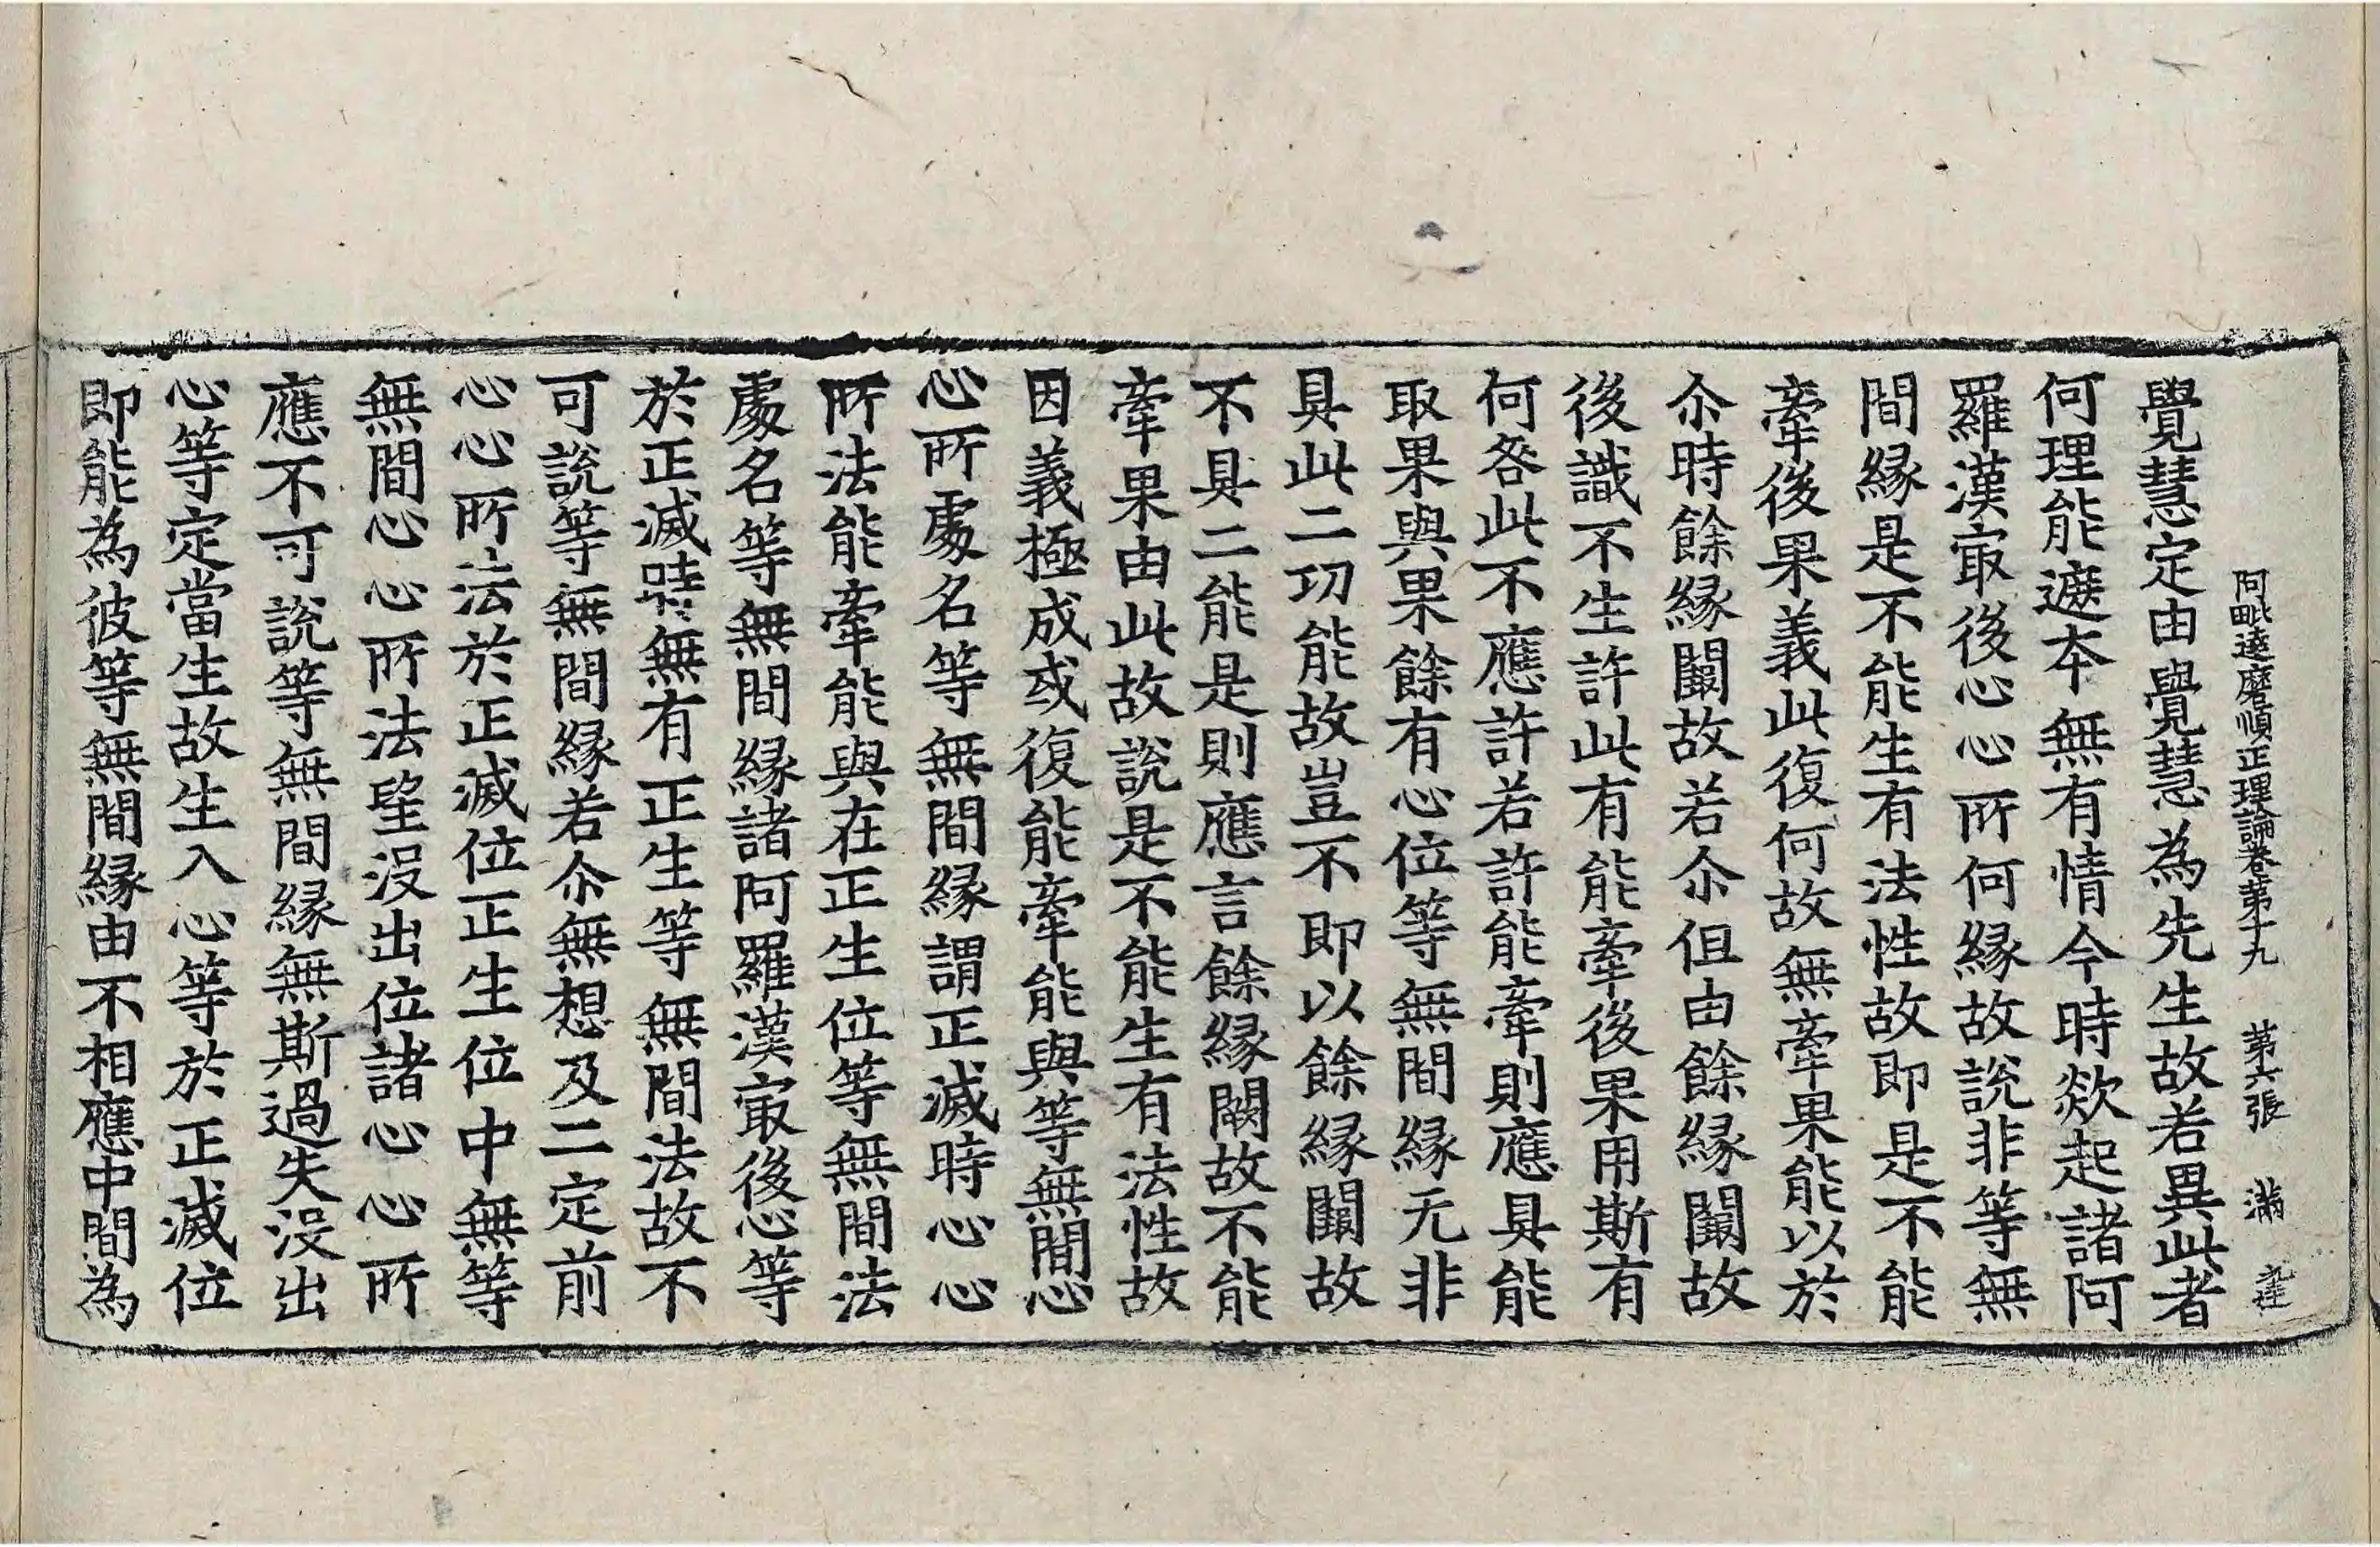 阿毗達磨順正理論卷第十九 第六張 滿
覺慧定由覺慧為先生故若異此者
何理能遮夲無有情今時欻起諸阿
羅漢㝡後心心所何縁故說非等無
間縁是不能生有法性故即是不能
牽後果義此復何故無牽果能以於
尒時餘縁闕故若尒但由餘縁闕故
後識不生許此有能牽後果用斯有
何咎此不應許若許能牽則應具能
取果與果餘有心位等無間縁无非
具此二功能故豈不即以餘縁闕故
不具二能是則應言餘縁闕故不能
牽果由此故說是不能生有法性故
因義極成或復能牽能與等無間心
心所處名等無間縁謂正滅時心心
所法能牽能與在正生位等無間法
處名等無間縁諸阿羅漢㝡後心等
於正滅時無有正生等無間法故不
可說等無間縁若尒無想及二定前
心心所法於正滅位正生位中無等
無間心心所法望没出位諸心心所
應不可說等無間縁無斯過失没出
心等定當生故生入心等於正滅位
即能為彼等無間縁由不相應中間為